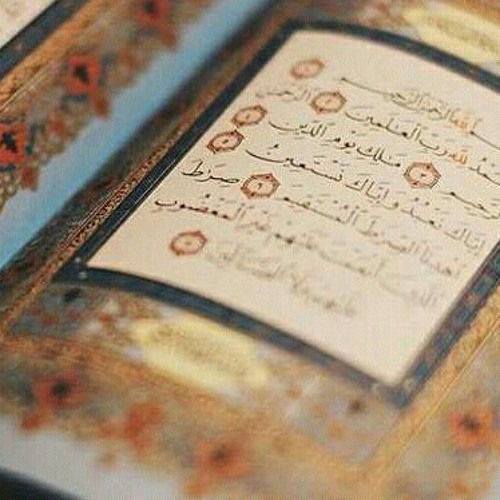 الله الرحمن الرحيم
لله رب العلمين الرحمن
ملك يوم الدين
إياك نعبد وإياك نستعين
اهدنا الصرط المستقيم صرط
الذين أنعمت عليهم غير المغضوب
عليهم ولا الضالين